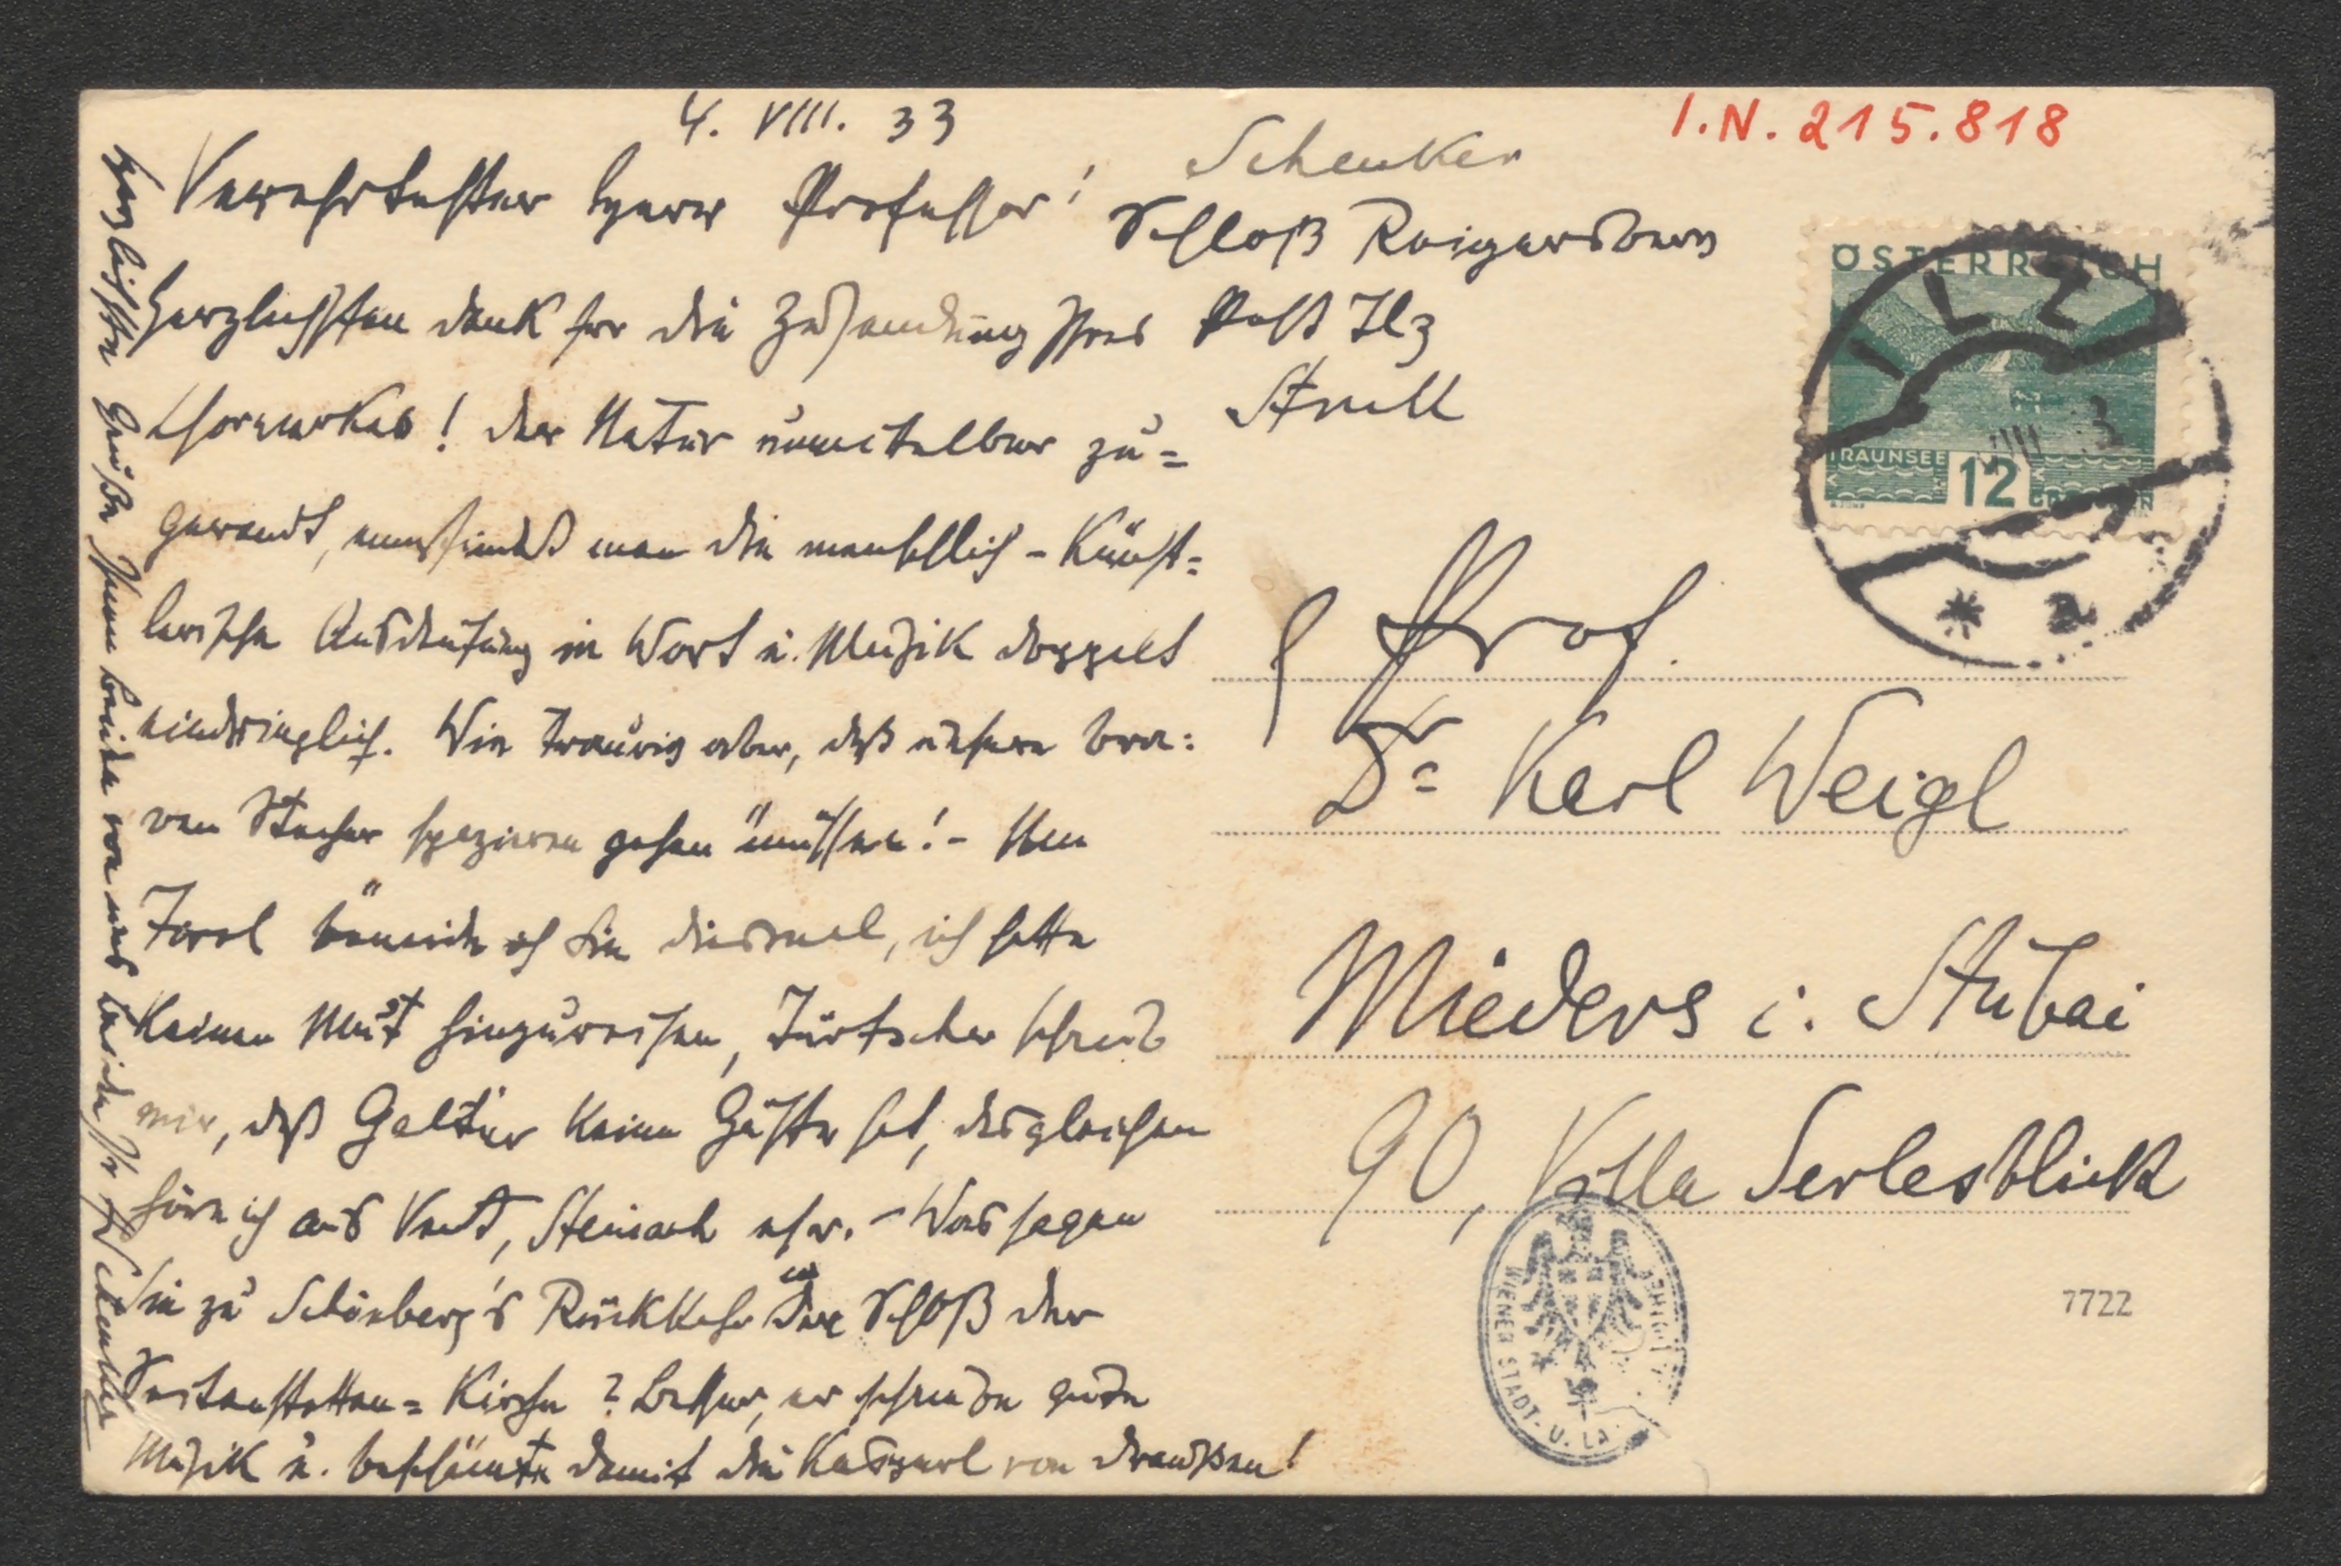 4. VIII. 33
I.N. 215.818
Schenker
Schloß Reigersberg
Post Ilz
Stmk
Verehrtester Herr Professor!
Herzlichsten Dank für die Zusendung Ihres
Chorwerkes! Der Natur unmittelbar zu=
gewandt, empfindet man die menschlich-künst=
lerische Ausdeutung in Wort u. Musik doppelt
eindringlich. Wie traurig aber, daß unsere bra=
ven Stecher spazieren gehen müssen! – Um
Tirol beneide ich Sie diesmal, ich hatte
keinen Mut hinzureisen, Türtscher schreibt
mir, daß Galtür keine Gäste hat, desgleichen
höre ich aus Vent, Steinach usw. – Was sagen
Sie zu Schönberg's Rückkehr in den Schoß der
Seitenstetten=Kirche? Besser, er schreibe gute
Musik u. beschämte damit die Kasperl von draußen!
Herzlichste Grüße Ihnen beiden von uns beiden Ihr H Schenker
ÖSTERREICH
TRAUNSEE
12
GROSCHEN
ILZ
* a
Prof.
Dr Karl Weigl
Mieders i. Stubai
90, Villa Serlesblick
WIENER STADT- U. LA
7722